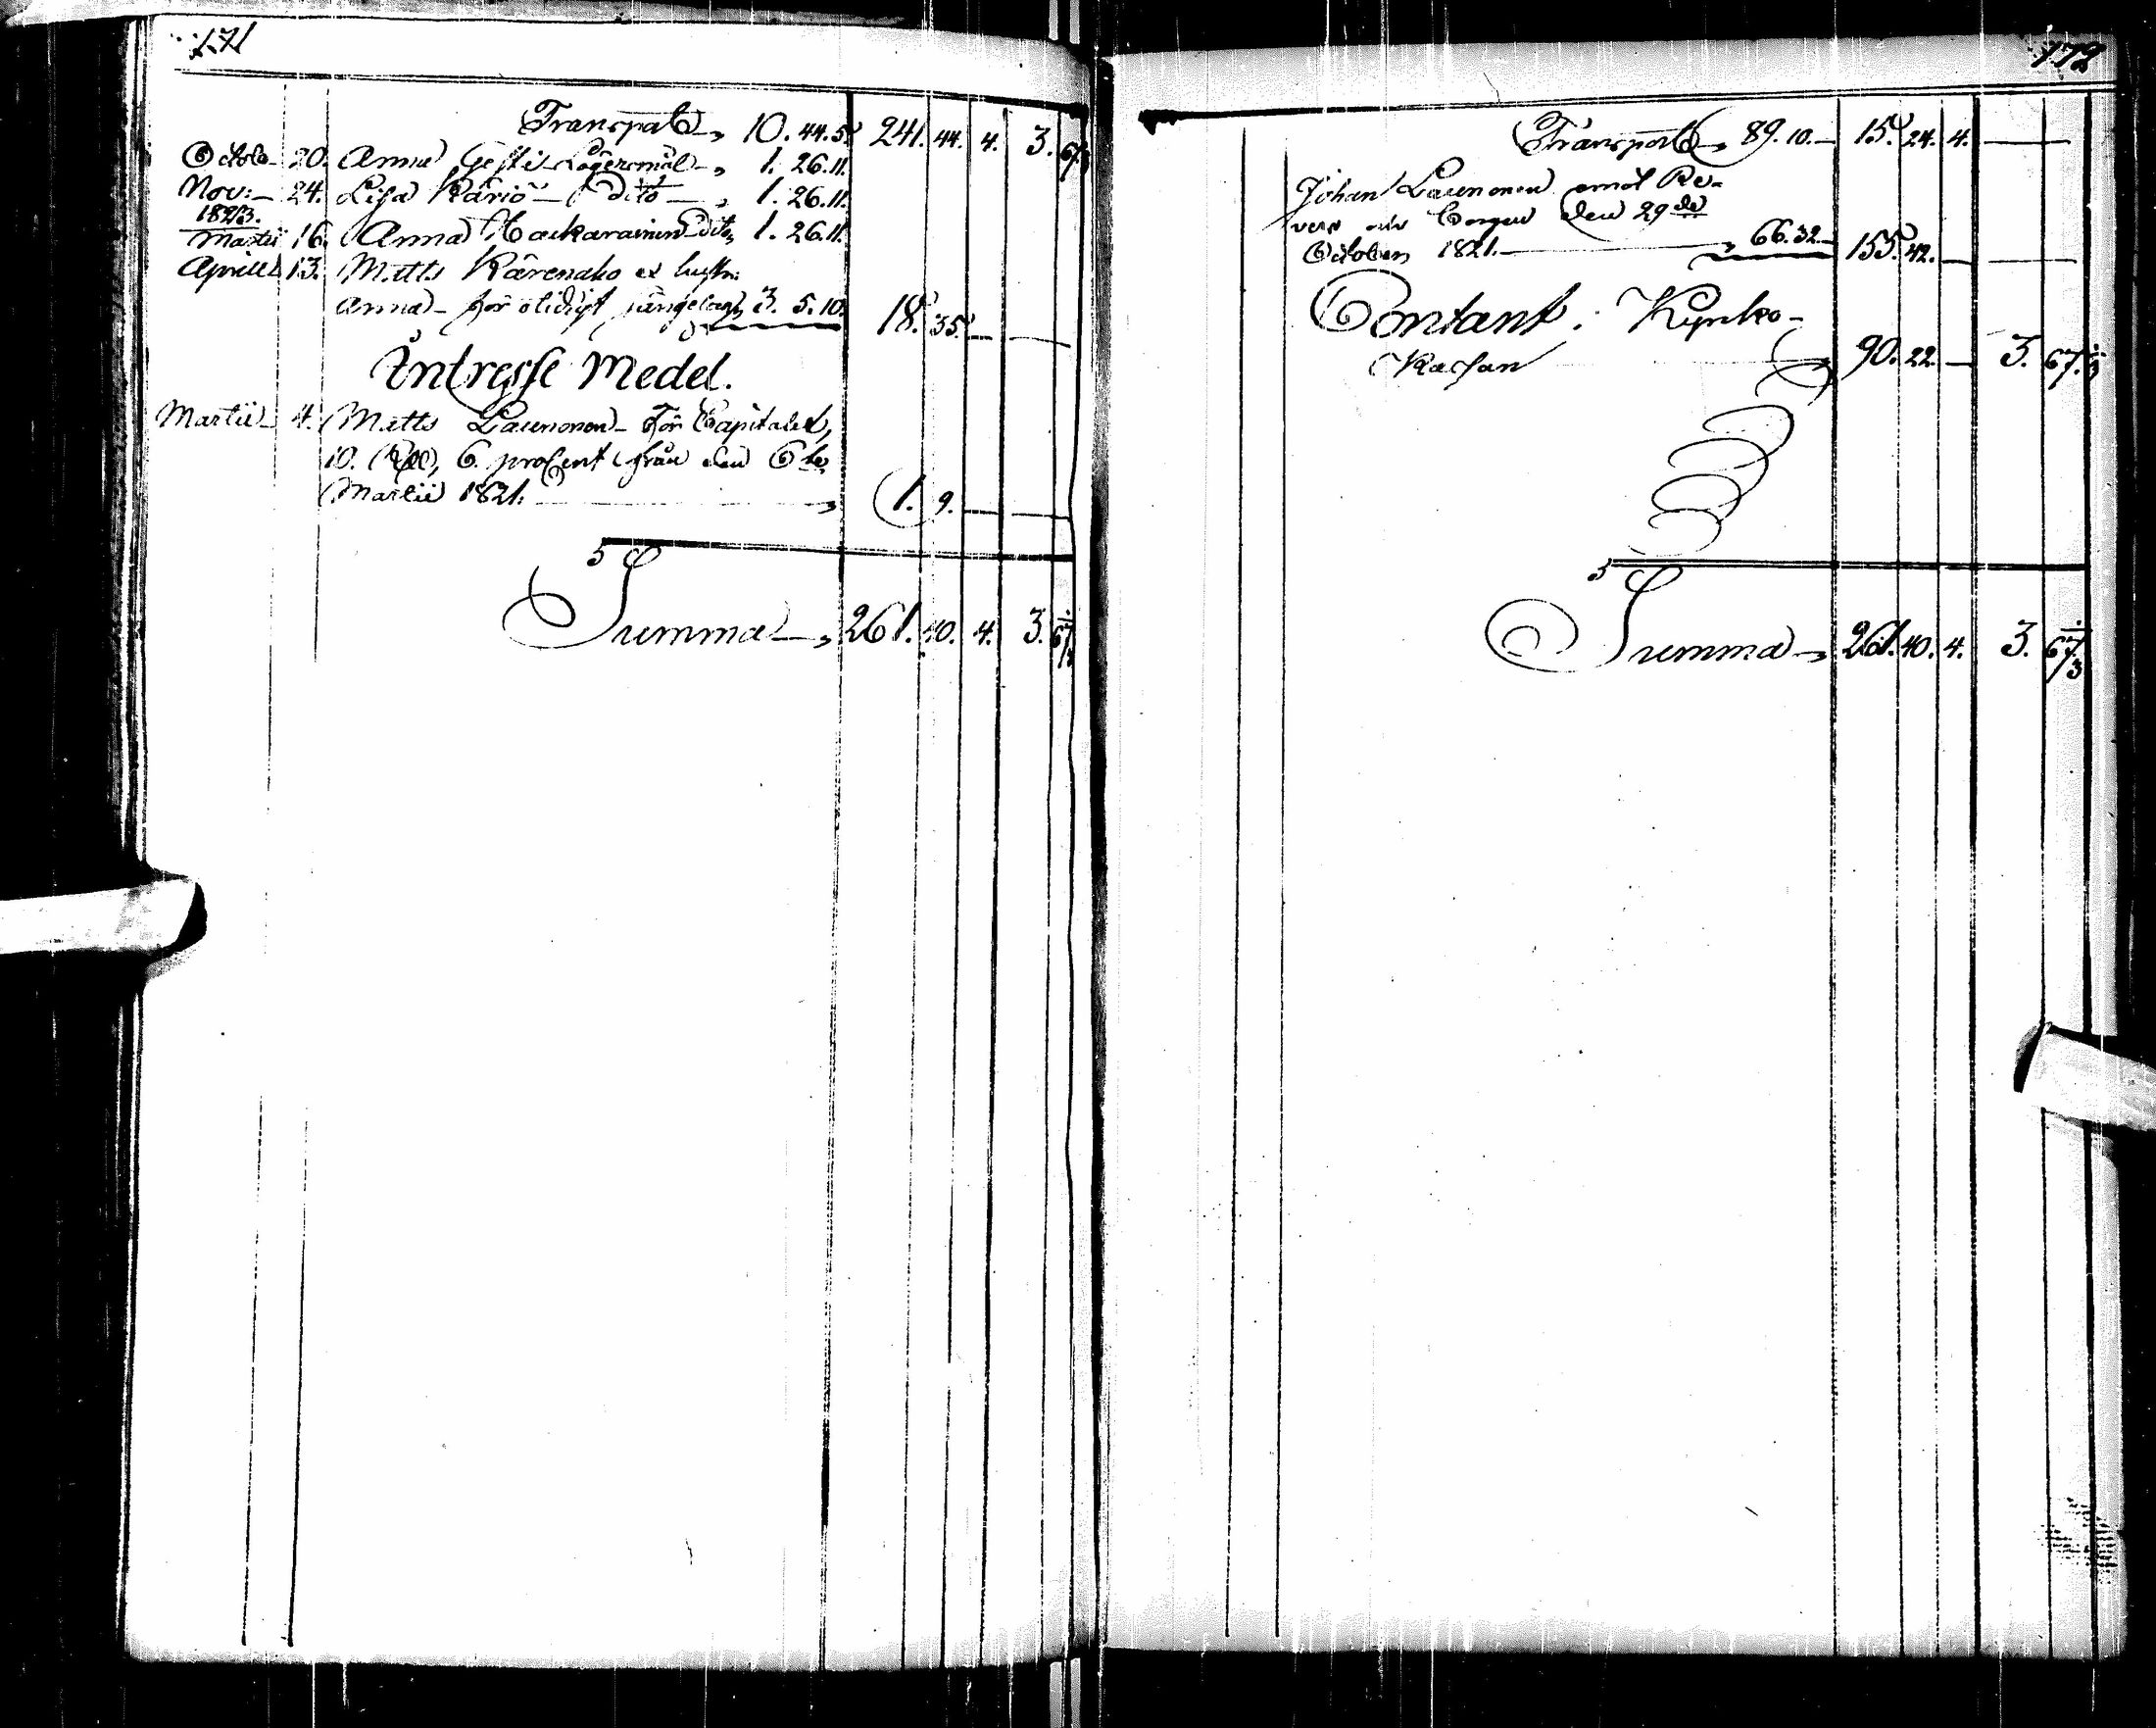 171
Transport „ 10. 44. 5. 241. 44. 4. 3. 67/3
Octob. 20. Anna Gesti Lägersmål „ 1. 26. 11.
Nov: 24. Lisa Käriö dito „ 1. 26. 11.
1823.
Martii 16. Anna Kaukarainen dito „ 1. 26. 11.
Aprill 13. Matts Kärenaho ex hustr:
Anna för olidigt sängelag „ 3. 5. 10. 18. 35. —
Intresse Medel.
Martii 4. Matts Launonen för Capitalet,
10. Rd, 6. procent från den 6te
Martii 1821. „ 1. 9. —
Summa „ 261. 40. 4. 3. 67/3
172
Transport „ 89. 10. — 15. 24. 4. —
Johan Launonen emot Re-
vers och Borgen den 29de
October 1821. „ 66. 32. 155. 42. —
Contant i Kyrko-
Kassan „ 90. 22. — 3. 67/3
Summa „ 261. 40. 4. 3. 67/3